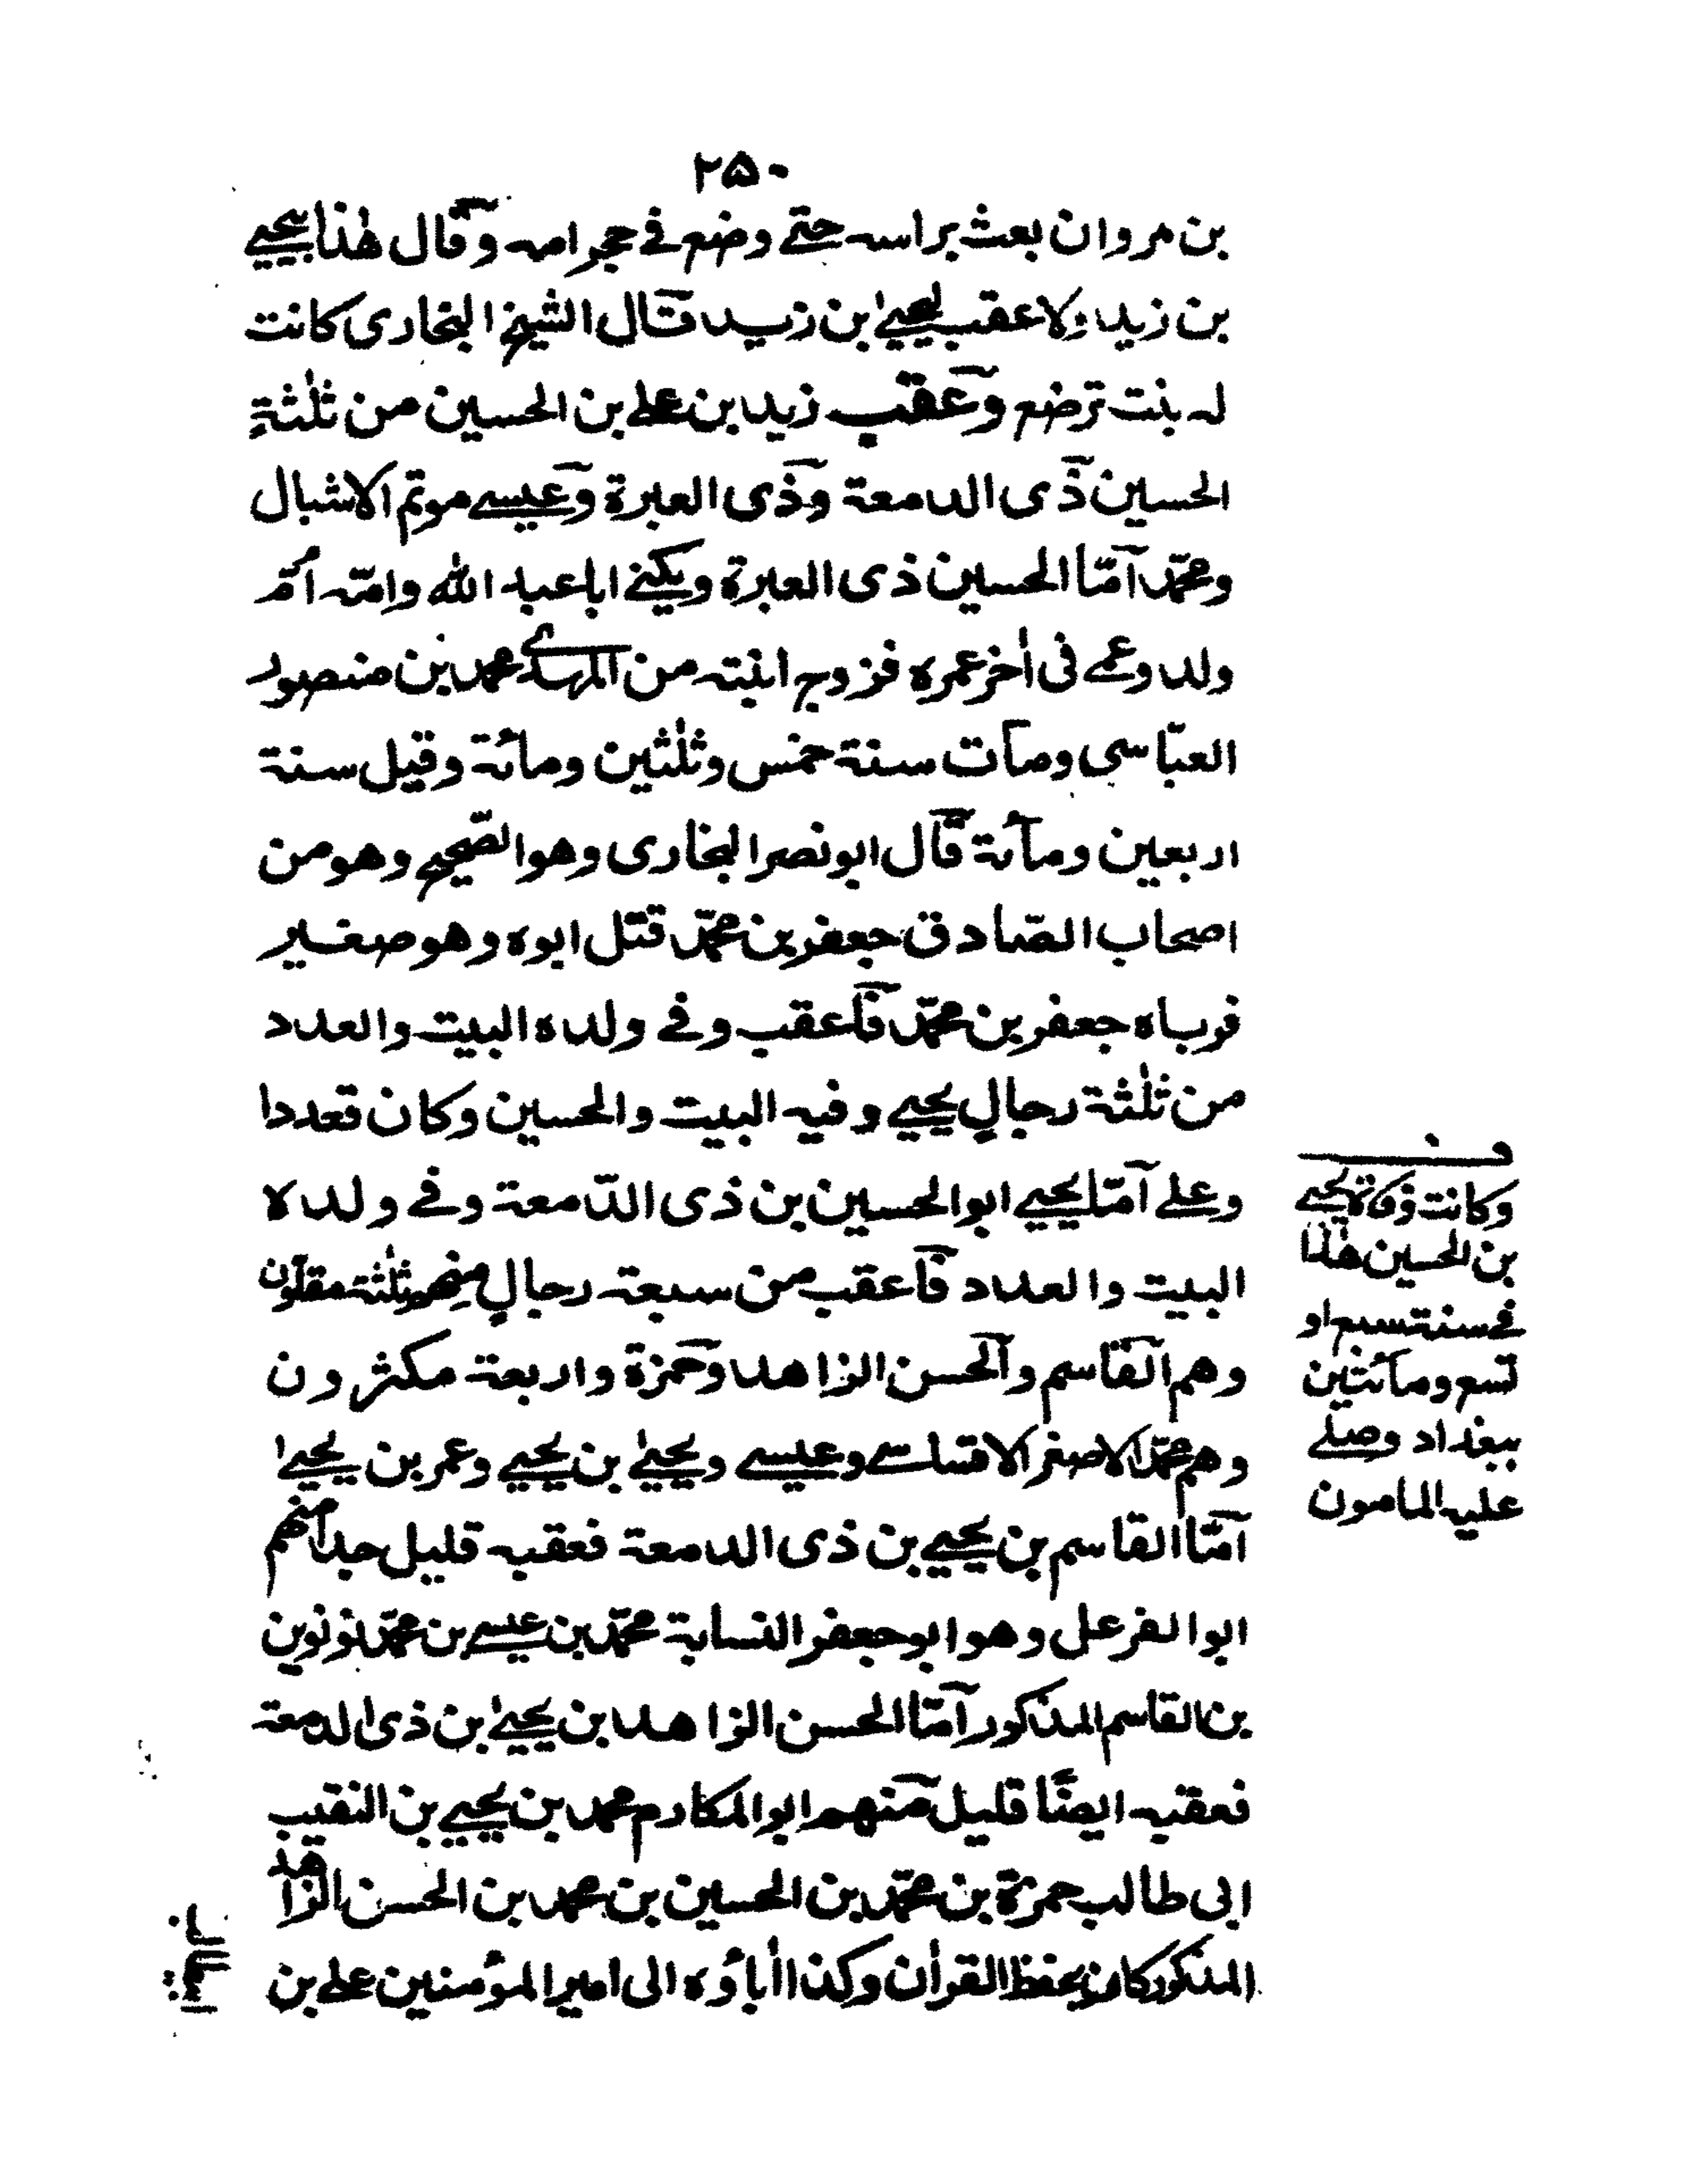 ٢٥٠
بن مروان بعث براسه حتے وضع فے حجر امه وقال هٰذا يحيے
بن زيد ولا عقب ليحيےٰ بن زيد قال الشيخ البخاری كانت
له بنت ترضع وعقب زيد بن علے بن الحسين من ثلٰثةٍ
الحسين ذی الدمعة وذی العبرة وعيسے موتم الاشبال
ومحمّد امّا الحسين ذی العبرة ويكنے ابا عبد الله وامّه اُمّ
ولد وعمے فی اٰخر عمره فزوج ابنته من المهدے محمد بن منصور
العبّاسی ومات سنة خمس وثلٰثين ومائة وقيل سنة
اربعين ومائة قال ابو نصر البخاری وهو الصّحيح وهو من
اصحاب الصّادق جعفر بن محمّد قتل ابوه وهو صغير
فرباه جعفر بن محمّد فاعقب وفے ولده البيت والعدد
من ثلٰثة رجالٍ يحيے وفيه البيت والحسين وكان قعددا
وعلے امّا يحيے ابو الحسين بن ذی الدّمعة وفے ولده
البيت والعدد فاعقب من سبعة رجالٍ منهم ثلٰثة مقلون
وهم القاسم والحسن الزاهد وحمزة واربعة مكثرون
وهم محمّد الاصغر الاقساسے وعيسے ويحيےٰ بن يحيے وعمر بن يحيےٰ
امّا القاسم بن يحيے بن ذی الدمعة فعقبه قليل جدا منهم
ابو الفرعل وهو ابو جعفر النسابة محمّد بن عيسے بن محمّد نونوين
بن القاسم المذكور امّا الحسن الزاهد بن يحيےٰ بن ذی الدمعة
فعقبه ايضًا قليل منهم ابو المكارم محمد بن يحيے بن النقيب
ابی طالب حمزة بن محمّد بن الحسين بن محمد بن الحسن الزاهد
المذكور كان يحفظ القراٰن وكذا اٰباؤه الی امير المؤمنين علے بن
وكانت وفاة يحيے
بن الحسين هٰذا
فے سنة سبع او
تسع ومائتين
ببغداد وصلے
عليه المامون